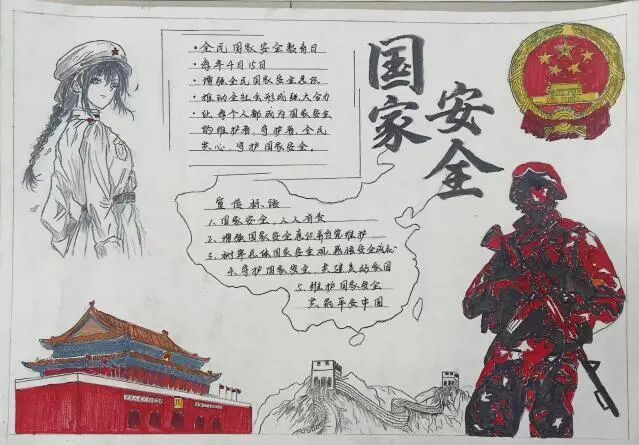 国家
安全
·全民国家安全教育日
·每年4月15日
·增强全民国家安全意识
·推动全社会形成强大合力
·让每个人都成为国家安全
的维护者、守护者，全民
共心，守护国家安全。
宣传标语
1.国家安全，人人有责
2.增强国家安全意识 自觉维护
3.树牢总体国家安全观，感悟安全成就
4.守护国家安全，共建美好家园
5.维护国家安全
共筑平安中国